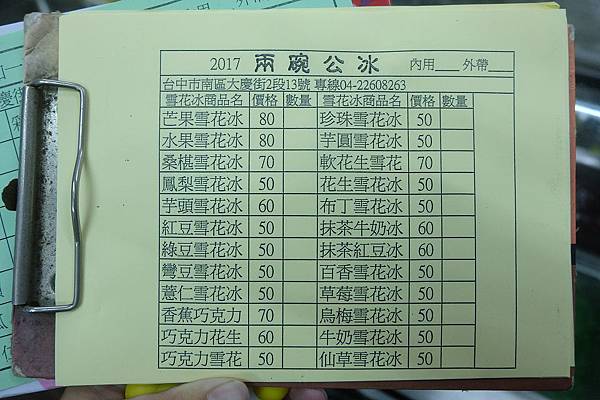 2017 兩碗公冰 內用___ 外帶___
台中市南區大慶街2段13號 專線04-22608263
雪花冰商品名 價格 數量 雪花冰商品名 價格 數量
芒果雪花冰 80 珍珠雪花冰 50
水果雪花冰 80 芋圓雪花冰 50
桑椹雪花冰 70 軟花生雪花 70
鳳梨雪花冰 50 花生雪花冰 50
芋頭雪花冰 60 布丁雪花冰 50
紅豆雪花冰 50 抹茶牛奶冰 60
綠豆雪花冰 50 抹茶紅豆冰 60
彎豆雪花冰 50 百香雪花冰 50
薏仁雪花冰 50 草莓雪花冰 50
香蕉巧克力 70 烏梅雪花冰 50
巧克力花生 60 牛奶雪花冰 50
巧克力雪花 50 仙草雪花冰 50